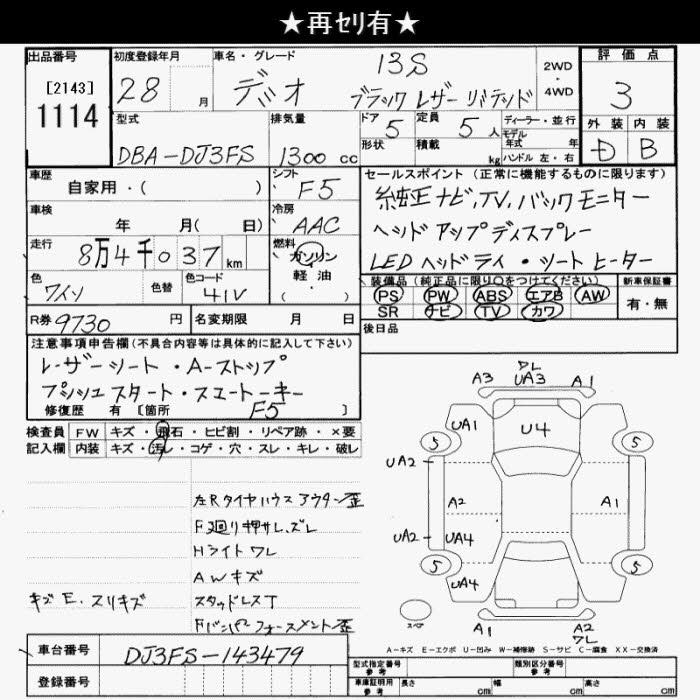 ★再セリ有★
出品番号 初度登録年月 車名・グレード 評価点
[2143] 28 月 デミオ 13S 2WD
1114 ブラックレザーリミテッド ・4WD 3
型式 排気量 ドア 5 定員 5 人 ディーラー・並行 外装 内装
DBA-DJ3FS 1300 cc 形状 積載 kg モデル年式 年 D B
ハンドル 左・右
車歴 シフト セールスポイント(正常に機能するものに限ります)
自家用・( ) F5 純正ナビ、TV、バックモニター
車検 冷房 ヘッドアップディスプレー
年 月( 日) AAC LEDヘッドライ・シートヒーター
走行 燃料
8万4千037 km ガソリン
軽油
・( )
色 色替 色コード 装備品(純正品に限り○をつけてください) 新車保証書
ワイン 41V PS PW ABS エアB AW 有・無
SR ナビ TV カワ
R券 9730 円 名変期限 月 日 後日品
注意事項申告欄(不具合内容等は具体的に記入して下さい)
レーザーシート・A-ストップ
プッシュスタート・スエートーキー
修復歴 有 [箇所 F5 ]
検査員 FW キズ・飛石・ヒビ割・リペア跡・×要
記入欄 内装 キズ・汚レ・コゲ・穴・スレ・キレ・破レ
左Rタイヤハウスアウター歪
F廻り押サレ、ズレ
Hライトワレ
AWキズ
キズE、スリキズ スタッドレスT
Fバンパーフォースメント歪
A3 ワレ UA3 A1
UA1 U4
5 5
UA2
A2 A1
UA2 UA4
5 5
UA4
スペア
A1 A2
ワレ
A-キズ E-エクボ U-凹み W-補修跡 S-サビ C-腐食 XX-交換済
車台番号 DJ3FS-143479
登録番号
型式指定番号 参考 類別区分番号 参考
車庫証明用 参考 長さ cm 幅 cm 高さ cm